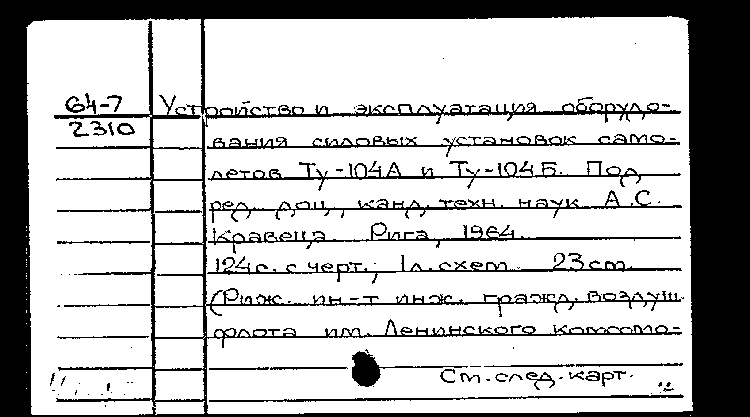 64-7 Устройство и эксплуатация оборудо-
2310 вания силовых установок само-
летов Ту-104А и Ту-104Б. Под
ред. доц., канд. техн. наук А.С.
Кравеца. Рига, 1964.
124 с. с черт.; 1 л. схем. 23 см.
(Риж. ин-т инж. гражд. воздуш.
флота им. Ленинского комсомо-
См. след. карт.